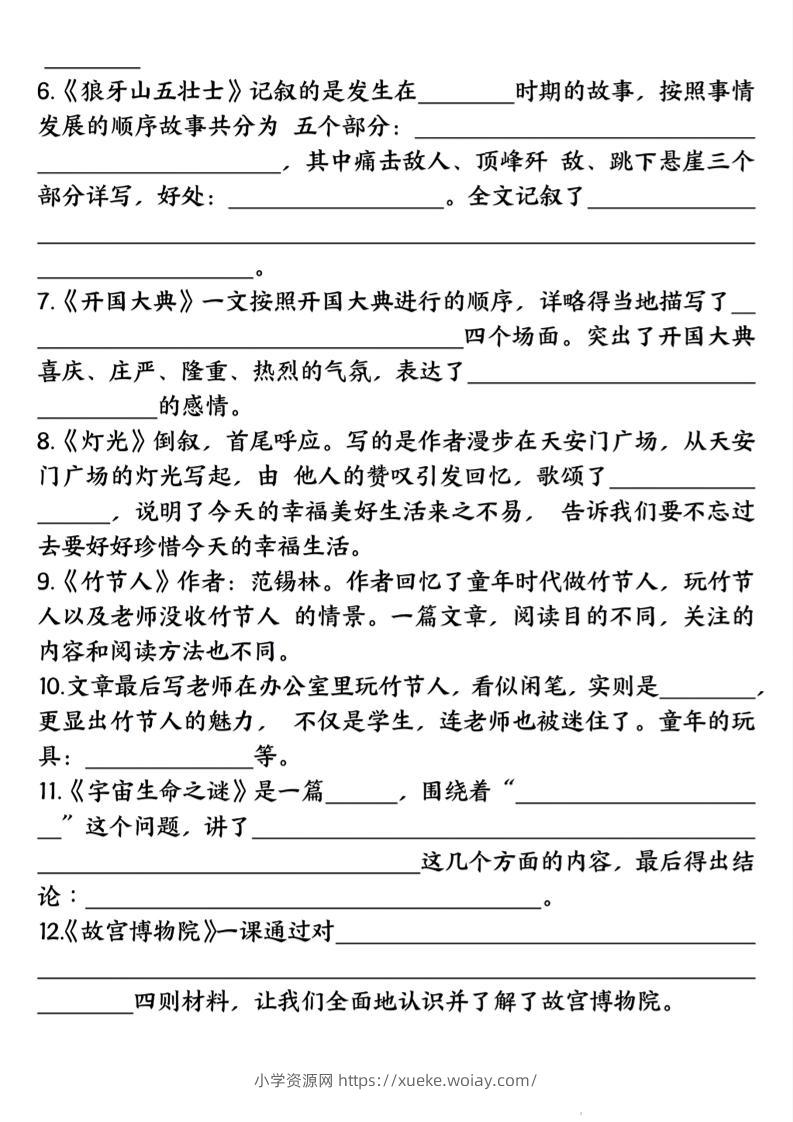 ________
6.《狼牙山五壮士》记叙的是发生在________时期的故事，按照事情
发展的顺序故事共分为 五个部分：____________________________
____________________，其中痛击敌人、顶峰歼 敌、跳下悬崖三个
部分详写，好处：__________________。全文记叙了______________
____________________________________________________________
__________________。
7.《开国大典》一文按照开国大典进行的顺序，详略得当地描写了__
____________________________________四个场面。突出了开国大典
喜庆、庄严、隆重、热烈的气氛，表达了________________________
__________的感情。
8.《灯光》倒叙，首尾呼应。写的是作者漫步在天安门广场，从天安
门广场的灯光写起，由 他人的赞叹引发回忆，歌颂了____________
______，说明了今天的幸福美好生活来之不易， 告诉我们要不忘过
去要好好珍惜今天的幸福生活。
9.《竹节人》作者：范锡林。作者回忆了童年时代做竹节人，玩竹节
人以及老师没收竹节人 的情景。一篇文章，阅读目的不同，关注的
内容和阅读方法也不同。
10.文章最后写老师在办公室里玩竹节人，看似闲笔，实则是________，
更显出竹节人的魅力， 不仅是学生，连老师也被迷住了。童年的玩
具：______________等。
11.《宇宙生命之谜》是一篇______，围绕着“____________________
__”这个问题，讲了__________________________________________
________________________________这几个方面的内容，最后得出结
论：______________________________________。
12.《故宫博物院》一课通过对___________________________________
____________________________________________________________
________四则材料，让我们全面地认识并了解了故宫博物院。
小学资源网 https://xueke.woiay.com/